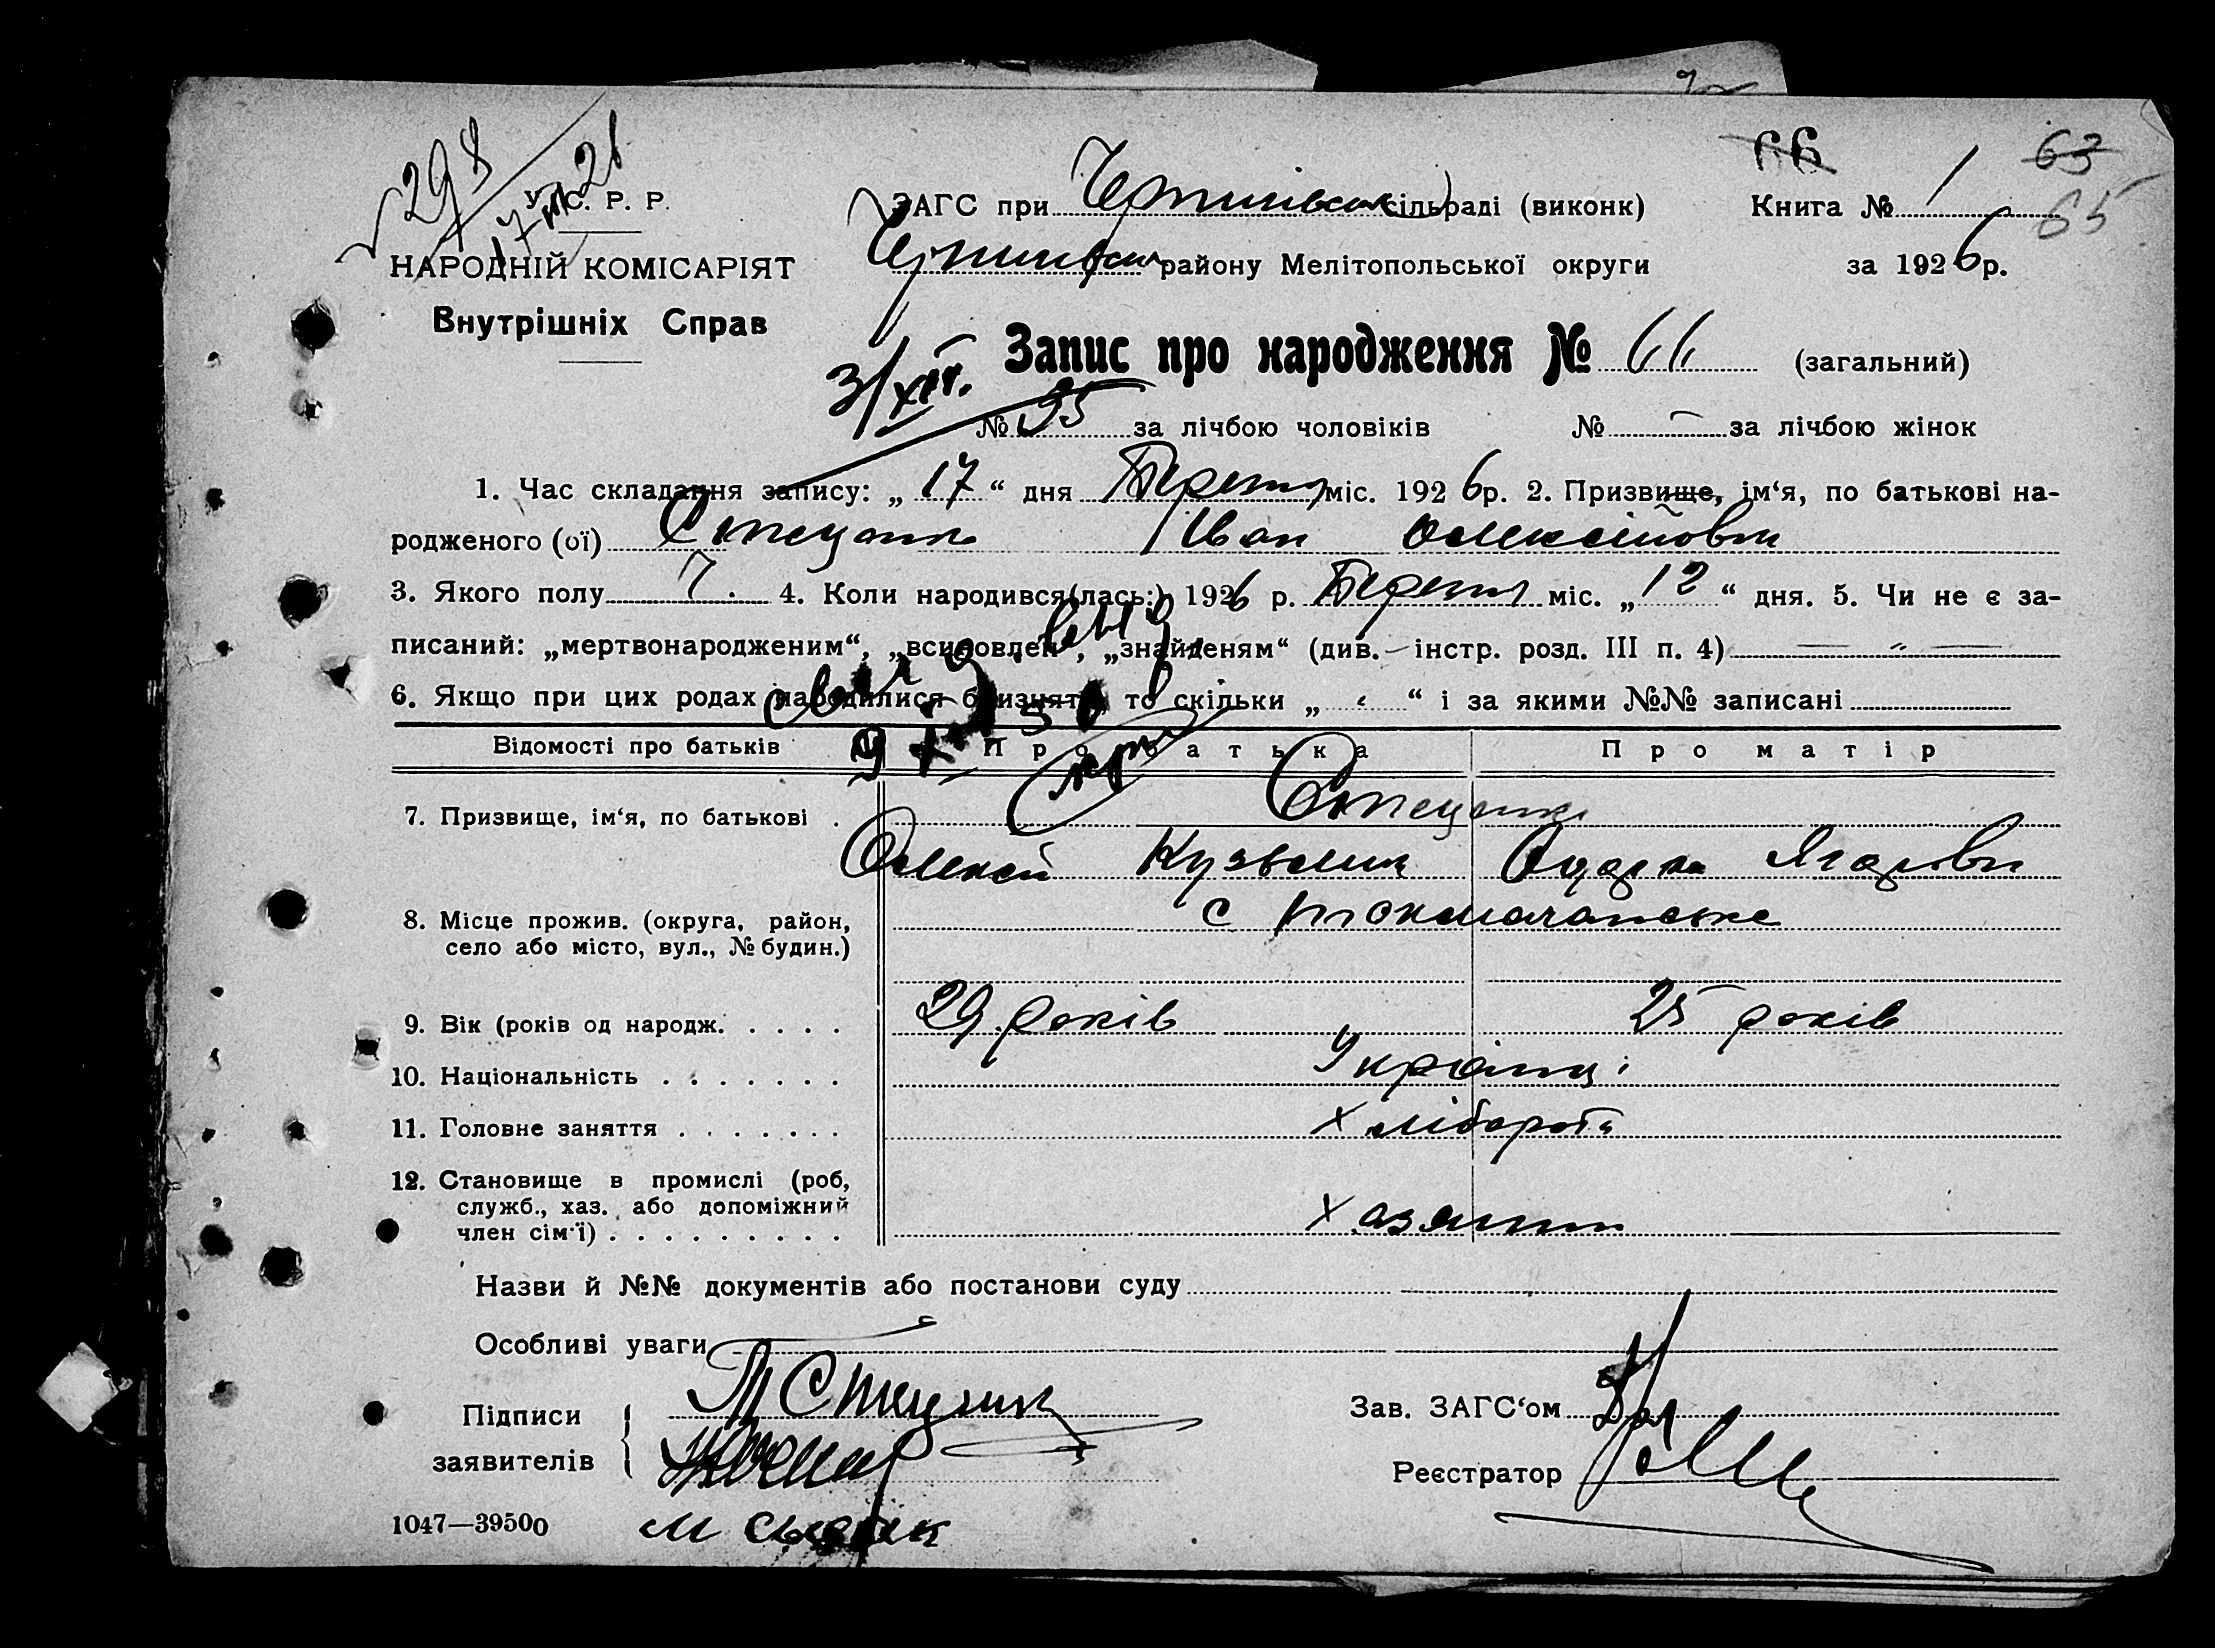 66 63
65
298
У. С. Р. Р.
НАРОДНІЙ КОМІСАРІЯТ
Внутрішніх Справ
ЗАГС при сільраді (виконк) Книга № 1
району Мелітопольської округи за 1926 р.
Запис про народження № 66 (загальний)
3/XII.
№ 35 за лічбою чоловіків № — за лічбою жінок
1. Час складання запису: „ 17 “ дня Березня міс. 1926 р. 2. Призвище, ім‘я, по батькові на-
родженого (ої) Стеценко Іван Олексійович
3. Якого полу Ч. 4. Коли народився(лась:) 1926 р. Березня міс. „ 12 “ дня. 5. Чи не є за-
писаний: „мертвонародженим“, „всиновлен“, „знайденям“ (див. інстр. розд. III п. 4) — „ —
6. Якщо при цих родах народилися близнята, то скільки „ “ і за якими №№ записані
Відомості про батьків Про батька Про матір
7. Призвище, ім‘я, по батькові . Стеценко
Олексій Кузьмич Одарка
8. Місце прожив. (округа, район, с Токмачанське
село або місто, вул., № будин.)
9. Вік (років од народж. . . . . 29 років 25 років
10. Національність . . . . . . . Українці
11. Головне заняття . . . . . . . Хлібороби
12. Становище в промислі (роб,
служб., хаз. або допоміжний
член сім‘ї) . . . . . . . . . Хазяїни
Назви й №№ документів або постанови суду
Особливі уваги
Підписи Стеценко Зав. ЗАГС‘ом
заявителів Реєстратор
1047—39500